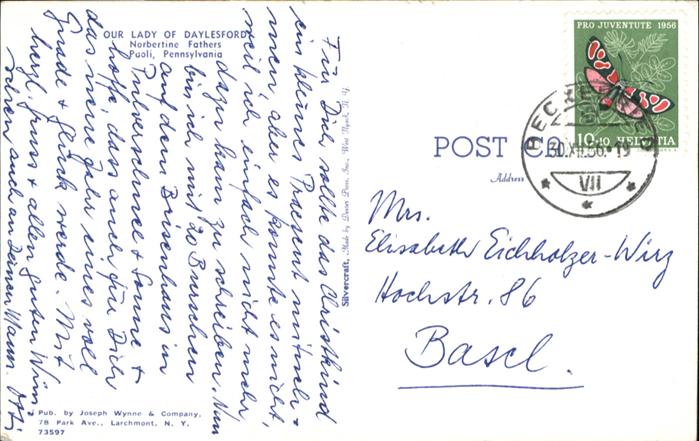 OUR LADY OF DAYLESFORD
Norbertine Fathers
Paoli, Pennsylvania
Für Dich sollte das Christkind
ein kleines Praesent mitneh-
men, aber es konnte es nicht,
weil ich einfach nicht mehr
dazu kam zu schreiben. Nun
bin ich mit 20 Burschen
auf dem Brisenhaus in
Pulverschnee + Sonne +
hoffe, das auch für Dich
das neue Jahr eines voll
Gnade + Glück werde. Mit
herzl. Gruss + allen guten Wün-
schen auch an Deinen Mann.
Pub. by Joseph Wynne & Company,
7B Park Ave., Larchmont, N. Y.
73597
Silvercraft. Made by Dexter Press, Inc., West Nyack, N. Y.
POST CARD
Address
PRO JUVENTUTE 1956
10+10 HELVETIA
30.XII.56.-19
VII
Mrs.
Elisabeth Eichholzer-Wirz
Hochstr. 86
Basel.